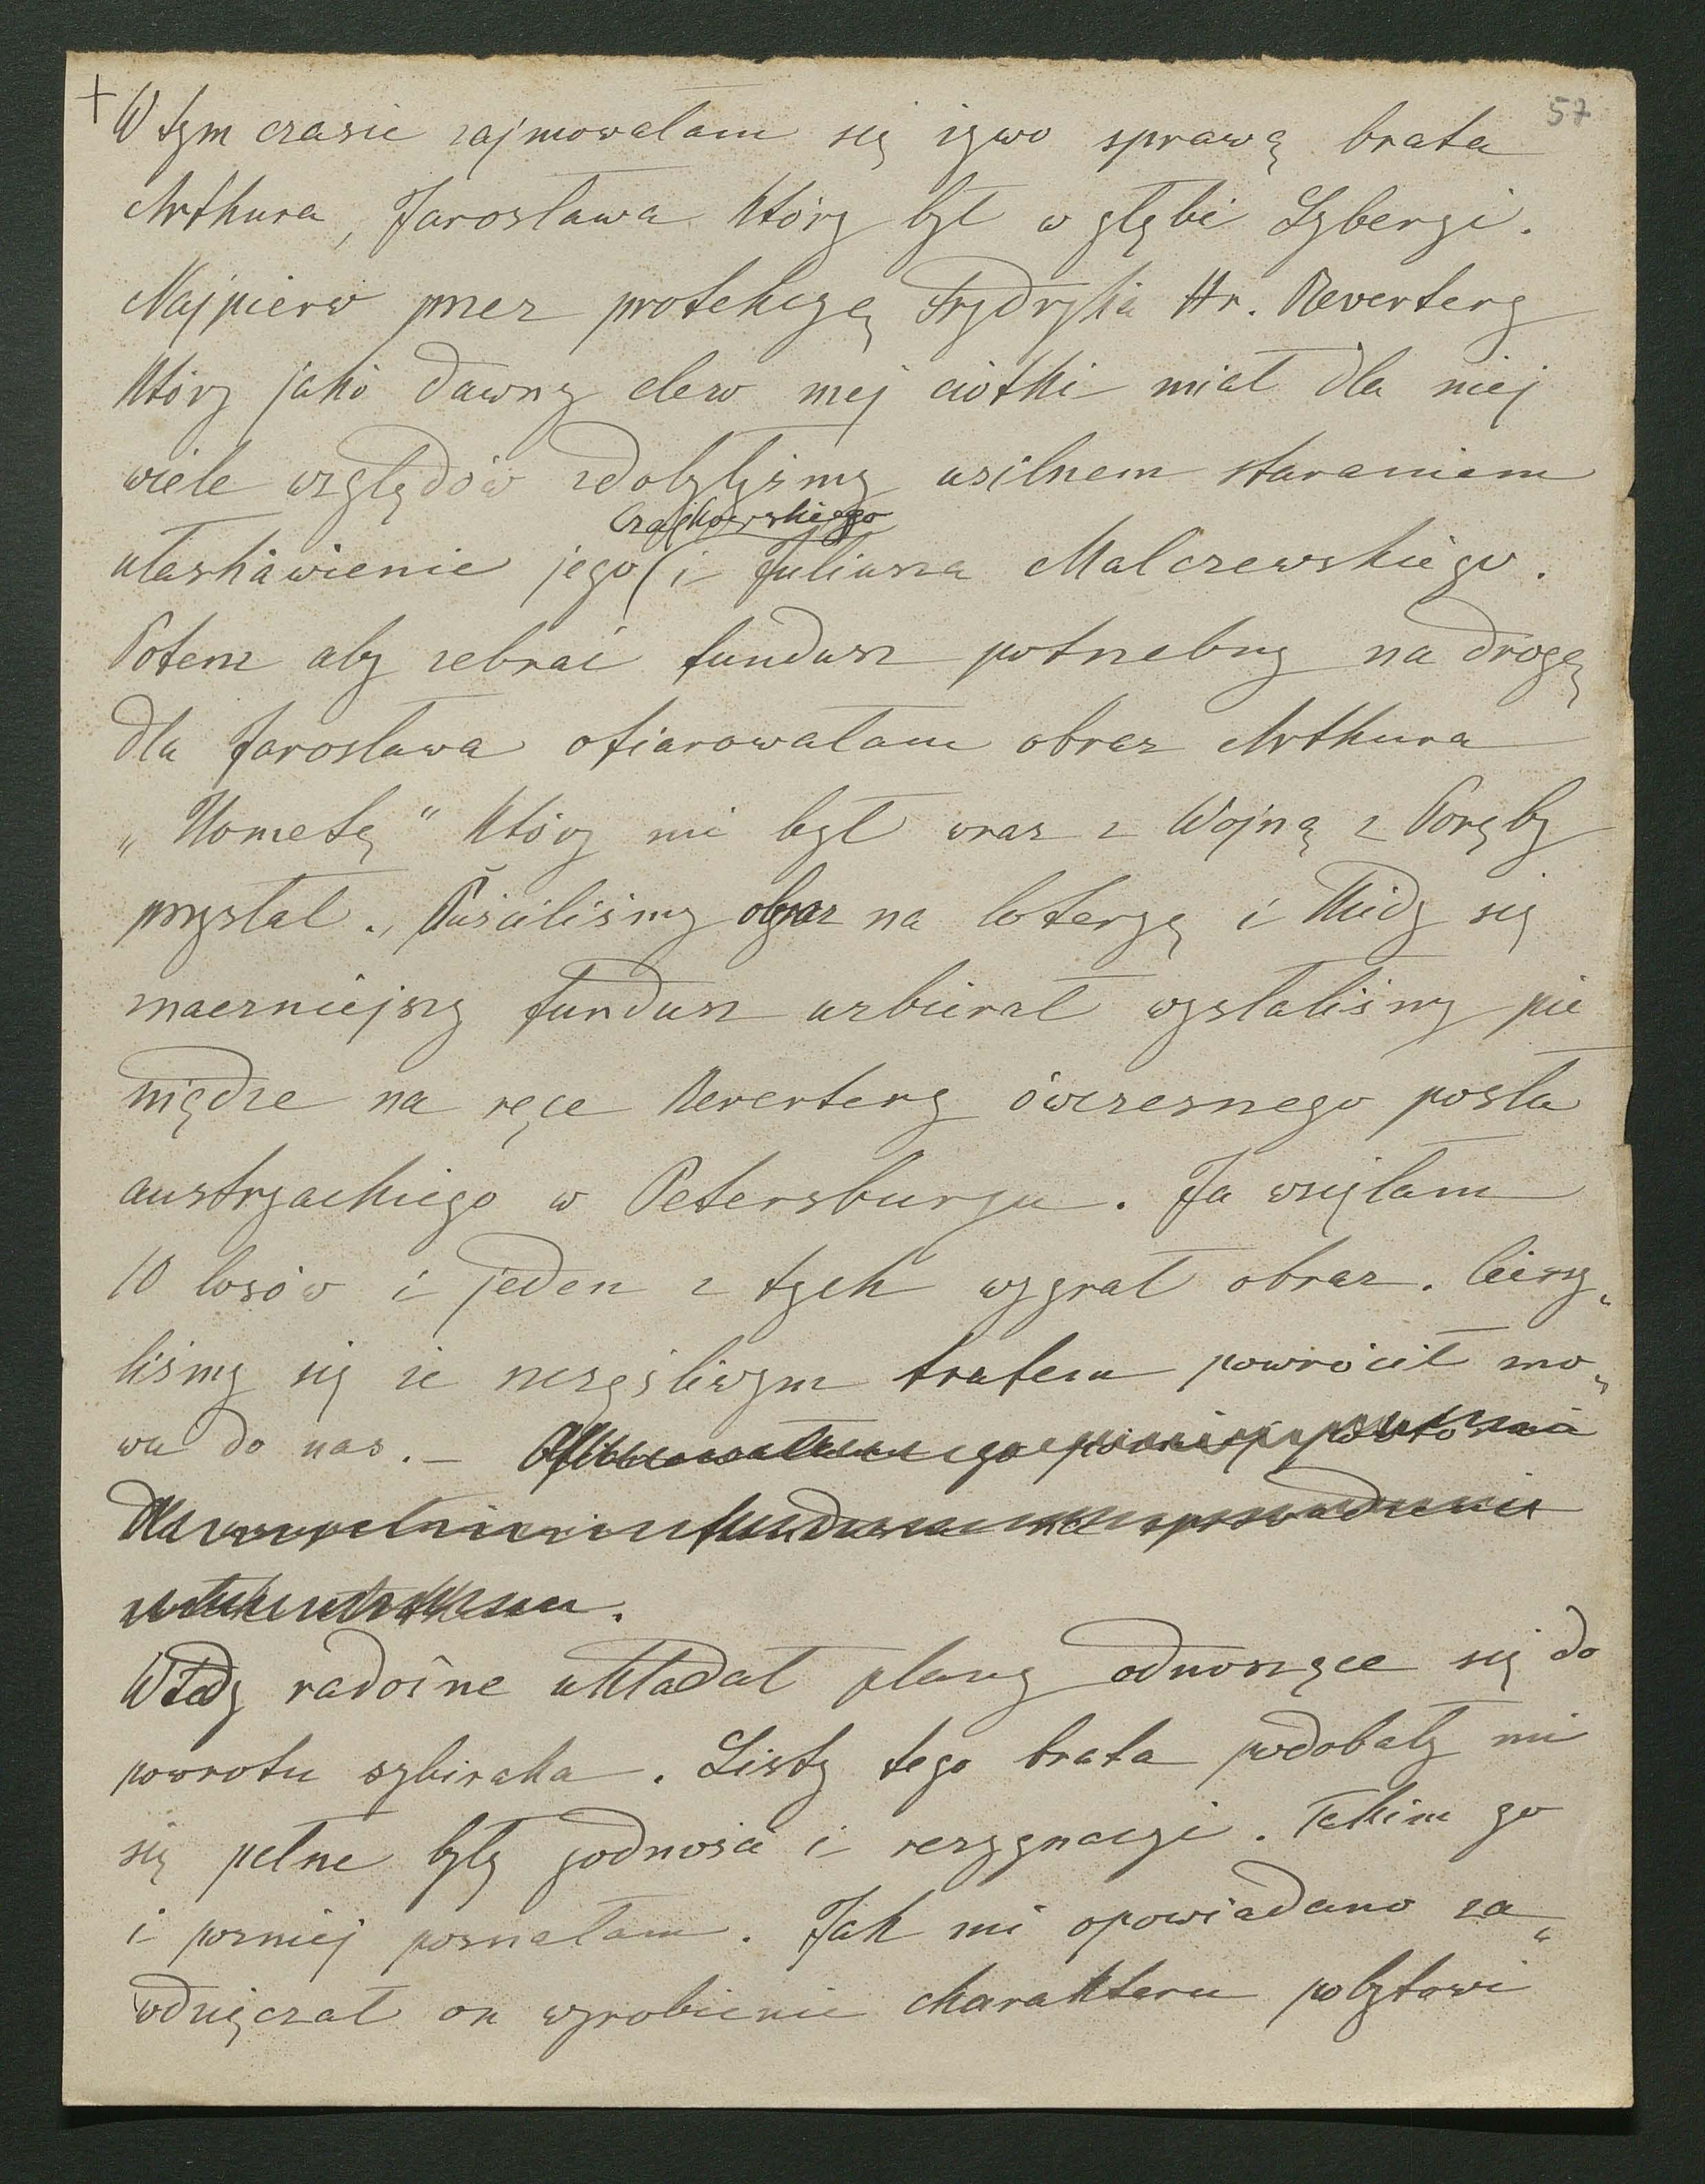 57
+ W tym czasie zajmowałam się żywo sprawą brata
Arthura, Jarosława który był w głębi Syberyi.
Najpierw przez protekcyę Frydryka Hr. Revertery
który jako dawny elew mej ciotki miał dla niej
wiele względów zdobyliśmy usilnem staraniem
Czajkowskiego
ułaskawienie jego (i Juliusza Malczewskiego.
Potem aby zebrać fundusz potrzebny na drogę
dla Jarosława ofiarowałam obraz Arthura
„Kometę" który mi był wraz z Wojną z Poręby
przysłał. Puściliśmy obraz na loteryę i kiedy się
znaczniejszy fundusz uzbierał wysłaliśmy pie
niądze na ręce Revertery ówczesnego posła
austryackiego w Petersburgu. Ja wzięłam
10 losów i jeden z tych wygrał obraz. Cieszy„
liśmy się że szczęśliwym trafem powrócił zno„
wu do nas. – Ofiarowałam go później powtórnie
dla uzupełnienia funduszu na sprowadzenie
Wtedy radośne układał plany odnoszące się do
powrotu sybiraka. Listy tego brata podobały mi
się pełne były godności i rezygnacyi. Takim go
i pozniej poznałam. Jak mi opowiadano za„
wdzięczał on wyrobienie charakteru pobytowi